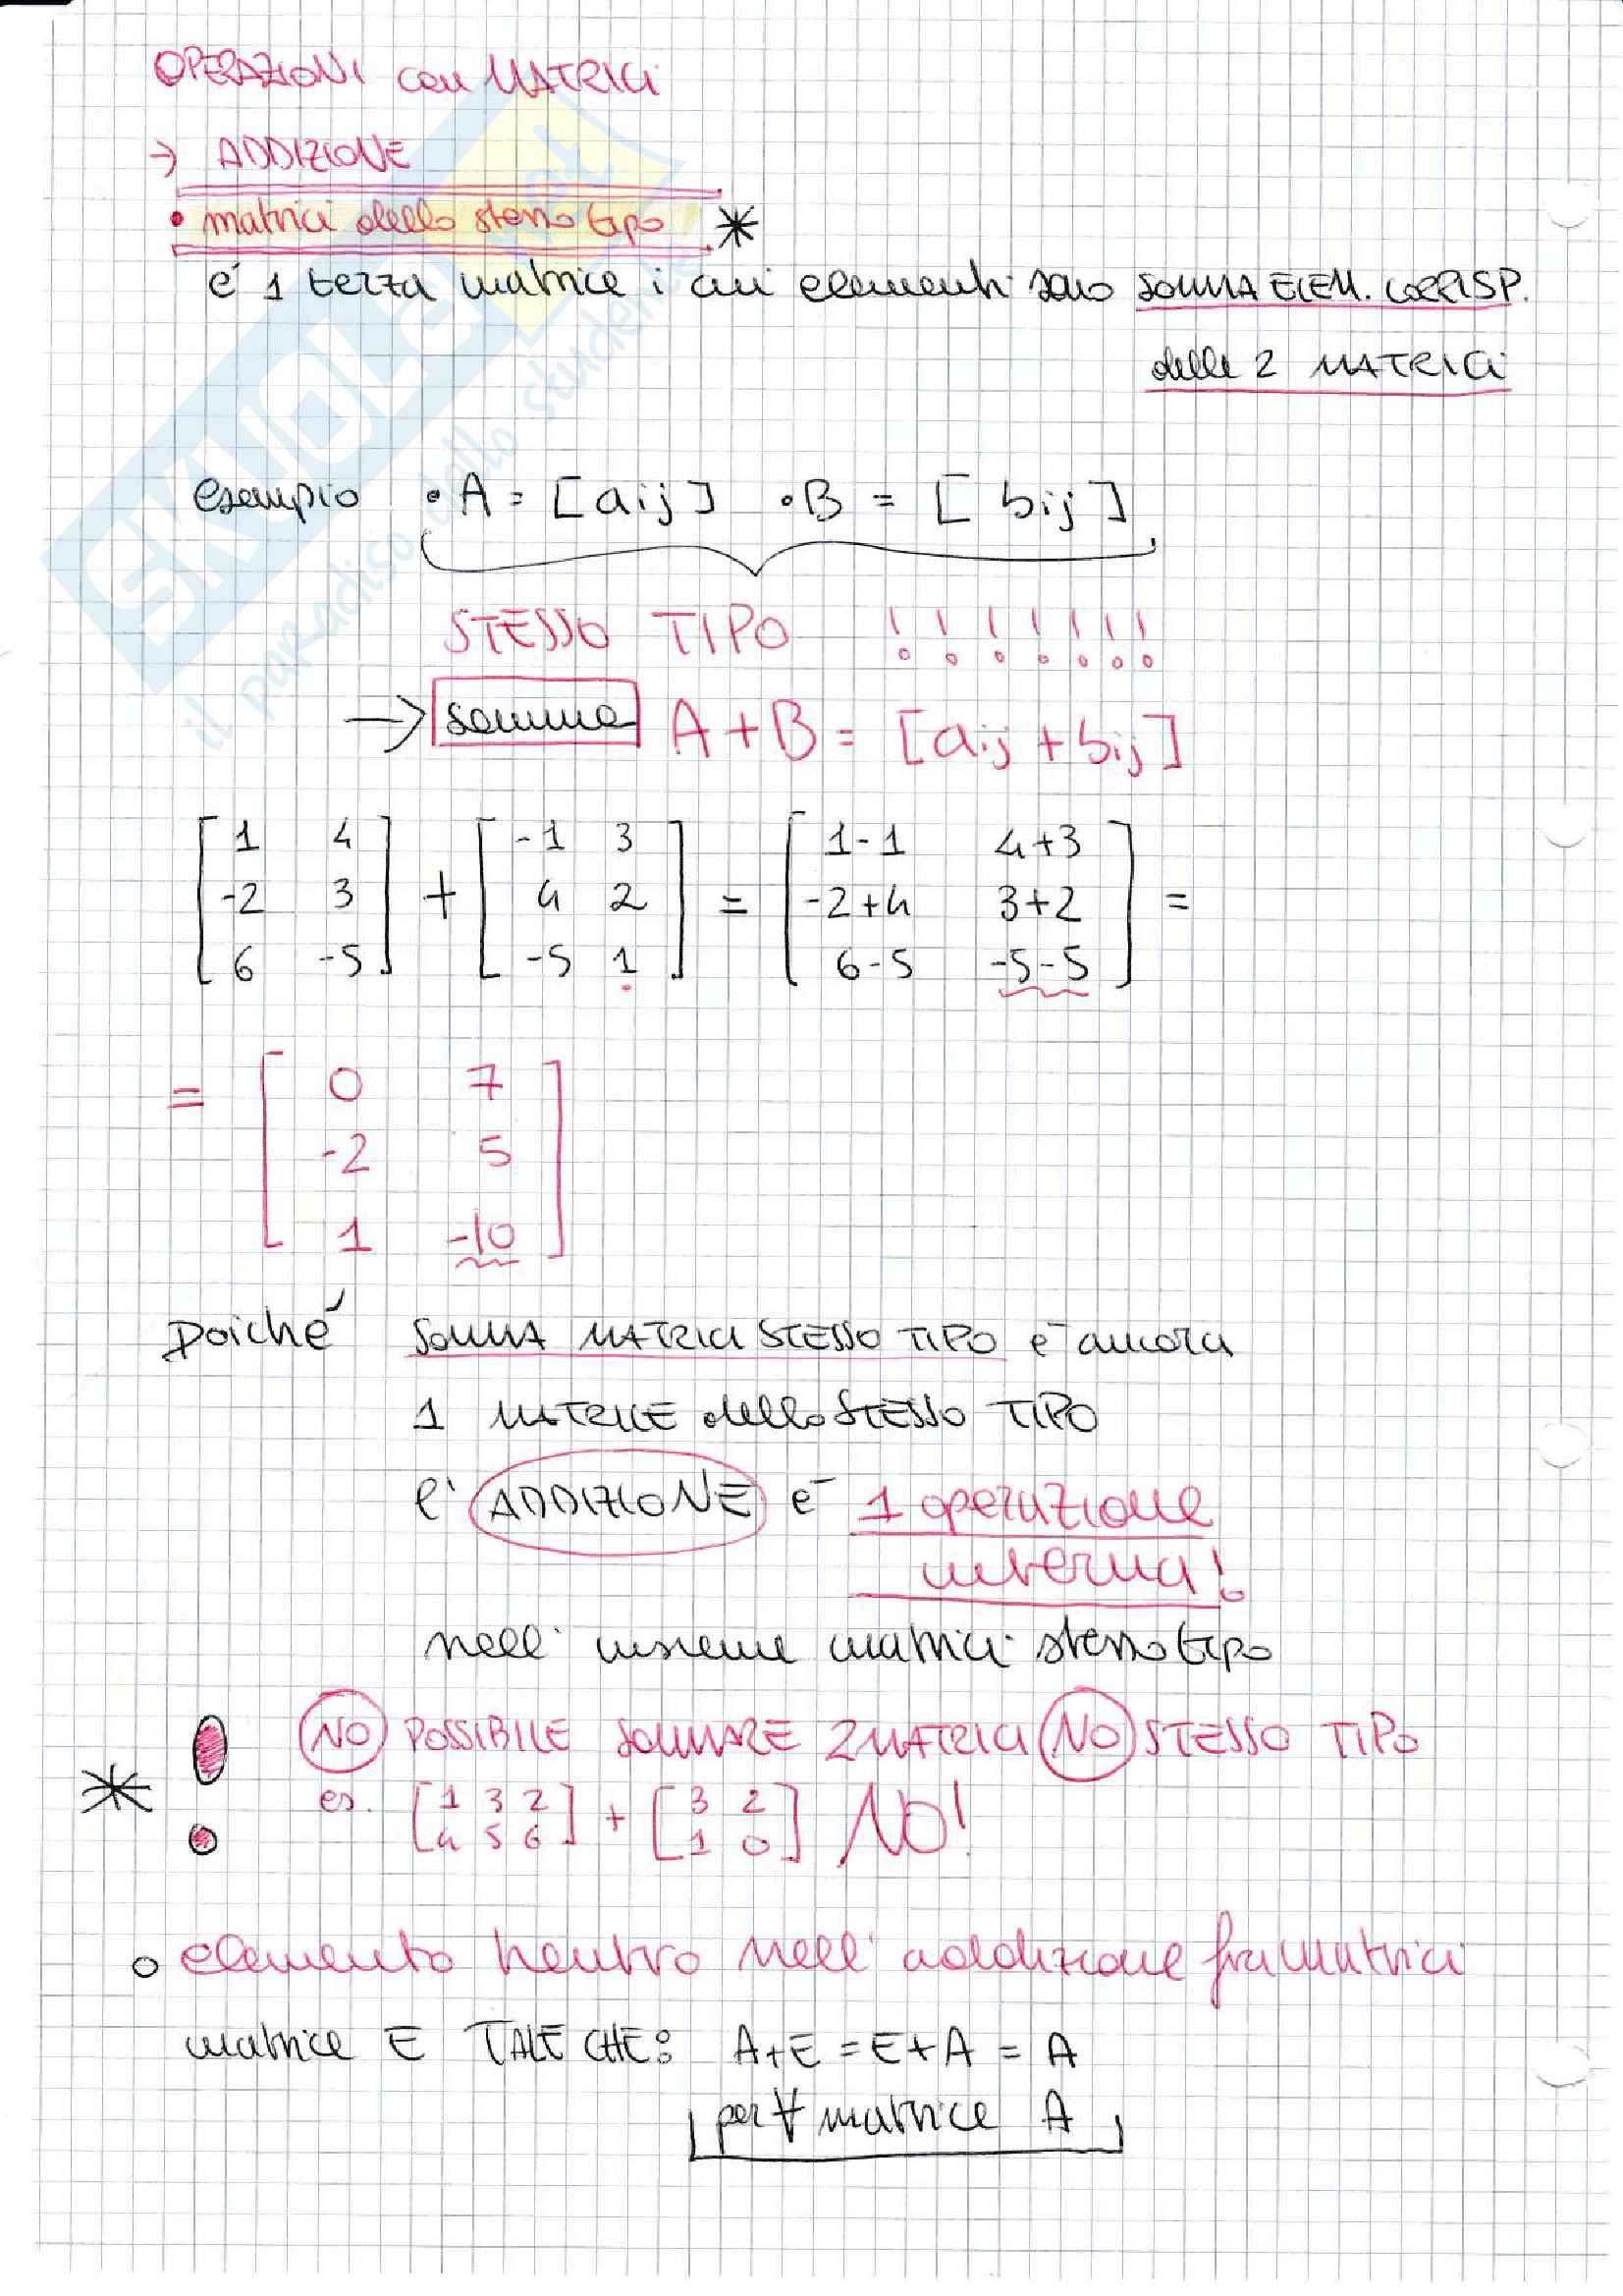 OPERAZIONI con MATRICI
→ ADDIZIONE
• matrici dello stesso tipo *
é 1 terza matrice i cui elementi sono SOMMA ELEM. CORRISP.
delle 2 MATRICI
esempio • A = [aij] • B = [bij]
STESSO TIPO !!!!!!!
→ somma A+B = [aij + bij]
[1 4; -2 3; 6 -5] + [-1 3; 4 2; -5 1] = [1-1 4+3; -2+4 3+2; 6-5 -5-5] =
= [0 7; -2 5; 1 -10]
poiché SOMMA MATRICI STESSO TIPO é ancora
1 MATRICE dello STESSO TIPO
l' ADDIZIONE é 1 operazione
interna!
nell' insieme matrici stesso tipo
NO POSSIBILE SOMMARE 2 MATRICI NO STESSO TIPO
* es. [1 3 2; 4 5 6] + [3 2; 1 0] NO!
o elemento neutro nell' addizione fra matrici
matrice E TALE CHE: A+E = E+A = A
per ∀ matrice A
SKUOLA.net
il paradiso dello studente